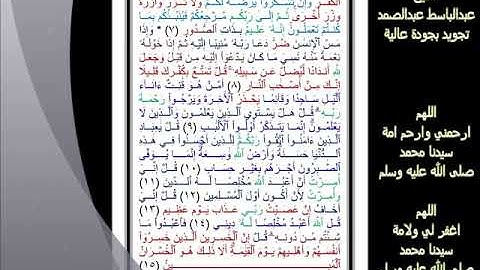 عبدالباسط عبدالصمد
تجويد بجودة عالية
اللهم
ارحمني وارحم امة
سيدنا محمد
صلى الله عليه وسلم
اللهم
اغفر لي ولامة
سيدنا محمد
صلى الله عليه وسلم
ٱلْكُفْرَ وَإِن تَشْكُرُوا۟ يَرْضَهُ لَكُمْ وَلَا تَزِرُ وَازِرَةٌ
وِزْرَ أُخْرَىٰ ثُمَّ إِلَىٰ رَبِّكُم مَّرْجِعُكُمْ فَيُنَبِّئُكُم بِمَا
كُنتُمْ تَعْمَلُونَ إِنَّهُۥ عَلِيمٌۢ بِذَاتِ ٱلصُّدُورِ (٧) * وَإِذَا
مَسَّ ٱلْإِنسَٰنَ ضُرٌّ دَعَا رَبَّهُۥ مُنِيبًا إِلَيْهِ ثُمَّ إِذَا خَوَّلَهُۥ
نِعْمَةً مِّنْهُ نَسِىَ مَا كَانَ يَدْعُوٓا۟ إِلَيْهِ مِن قَبْلُ وَجَعَلَ
لِلَّهِ أَندَادًا لِّيُضِلَّ عَن سَبِيلِهِۦ قُلْ تَمَتَّعْ بِكُفْرِكَ قَلِيلًا
إِنَّكَ مِنْ أَصْحَٰبِ ٱلنَّارِ (٨) أَمَّنْ هُوَ قَٰنِتٌ ءَانَآءَ
ٱلَّيْلِ سَاجِدًا وَقَآئِمًا يَحْذَرُ ٱلْءَاخِرَةَ وَيَرْجُوا۟ رَحْمَةَ
رَبِّهِۦ قُلْ هَلْ يَسْتَوِى ٱلَّذِينَ يَعْلَمُونَ وَٱلَّذِينَ لَا
يَعْلَمُونَ إِنَّمَا يَتَذَكَّرُ أُو۟لُوا۟ ٱلْأَلْبَٰبِ (٩) قُلْ يَٰعِبَادِ
ٱلَّذِينَ ءَامَنُوا۟ ٱتَّقُوا۟ رَبَّكُمْ لِلَّذِينَ أَحْسَنُوا۟ فِى هَٰذِهِ
ٱلدُّنْيَا حَسَنَةٌ وَأَرْضُ ٱللَّهِ وَٰسِعَةٌ إِنَّمَا يُوَفَّى
ٱلصَّٰبِرُونَ أَجْرَهُم بِغَيْرِ حِسَابٍ (١٠) قُلْ إِنِّىٓ
أُمِرْتُ أَنْ أَعْبُدَ ٱللَّهَ مُخْلِصًا لَّهُ ٱلدِّينَ (١١)
وَأُمِرْتُ لِأَنْ أَكُونَ أَوَّلَ ٱلْمُسْلِمِينَ (١٢) قُلْ إِنِّىٓ
أَخَافُ إِنْ عَصَيْتُ رَبِّى عَذَابَ يَوْمٍ عَظِيمٍ (١٣)
قُلِ ٱللَّهَ أَعْبُدُ مُخْلِصًا لَّهُۥ دِينِى (١٤) فَٱعْبُدُوا۟ مَا
شِئْتُم مِّن دُونِهِۦ قُلْ إِنَّ ٱلْخَٰسِرِينَ ٱلَّذِينَ خَسِرُوٓا۟
أَنفُسَهُمْ وَأَهْلِيهِمْ يَوْمَ ٱلْقِيَٰمَةِ أَلَا ذَٰلِكَ هُوَ ٱلْخُسْرَانُ
ٱلْمُبِينُ (١٥)